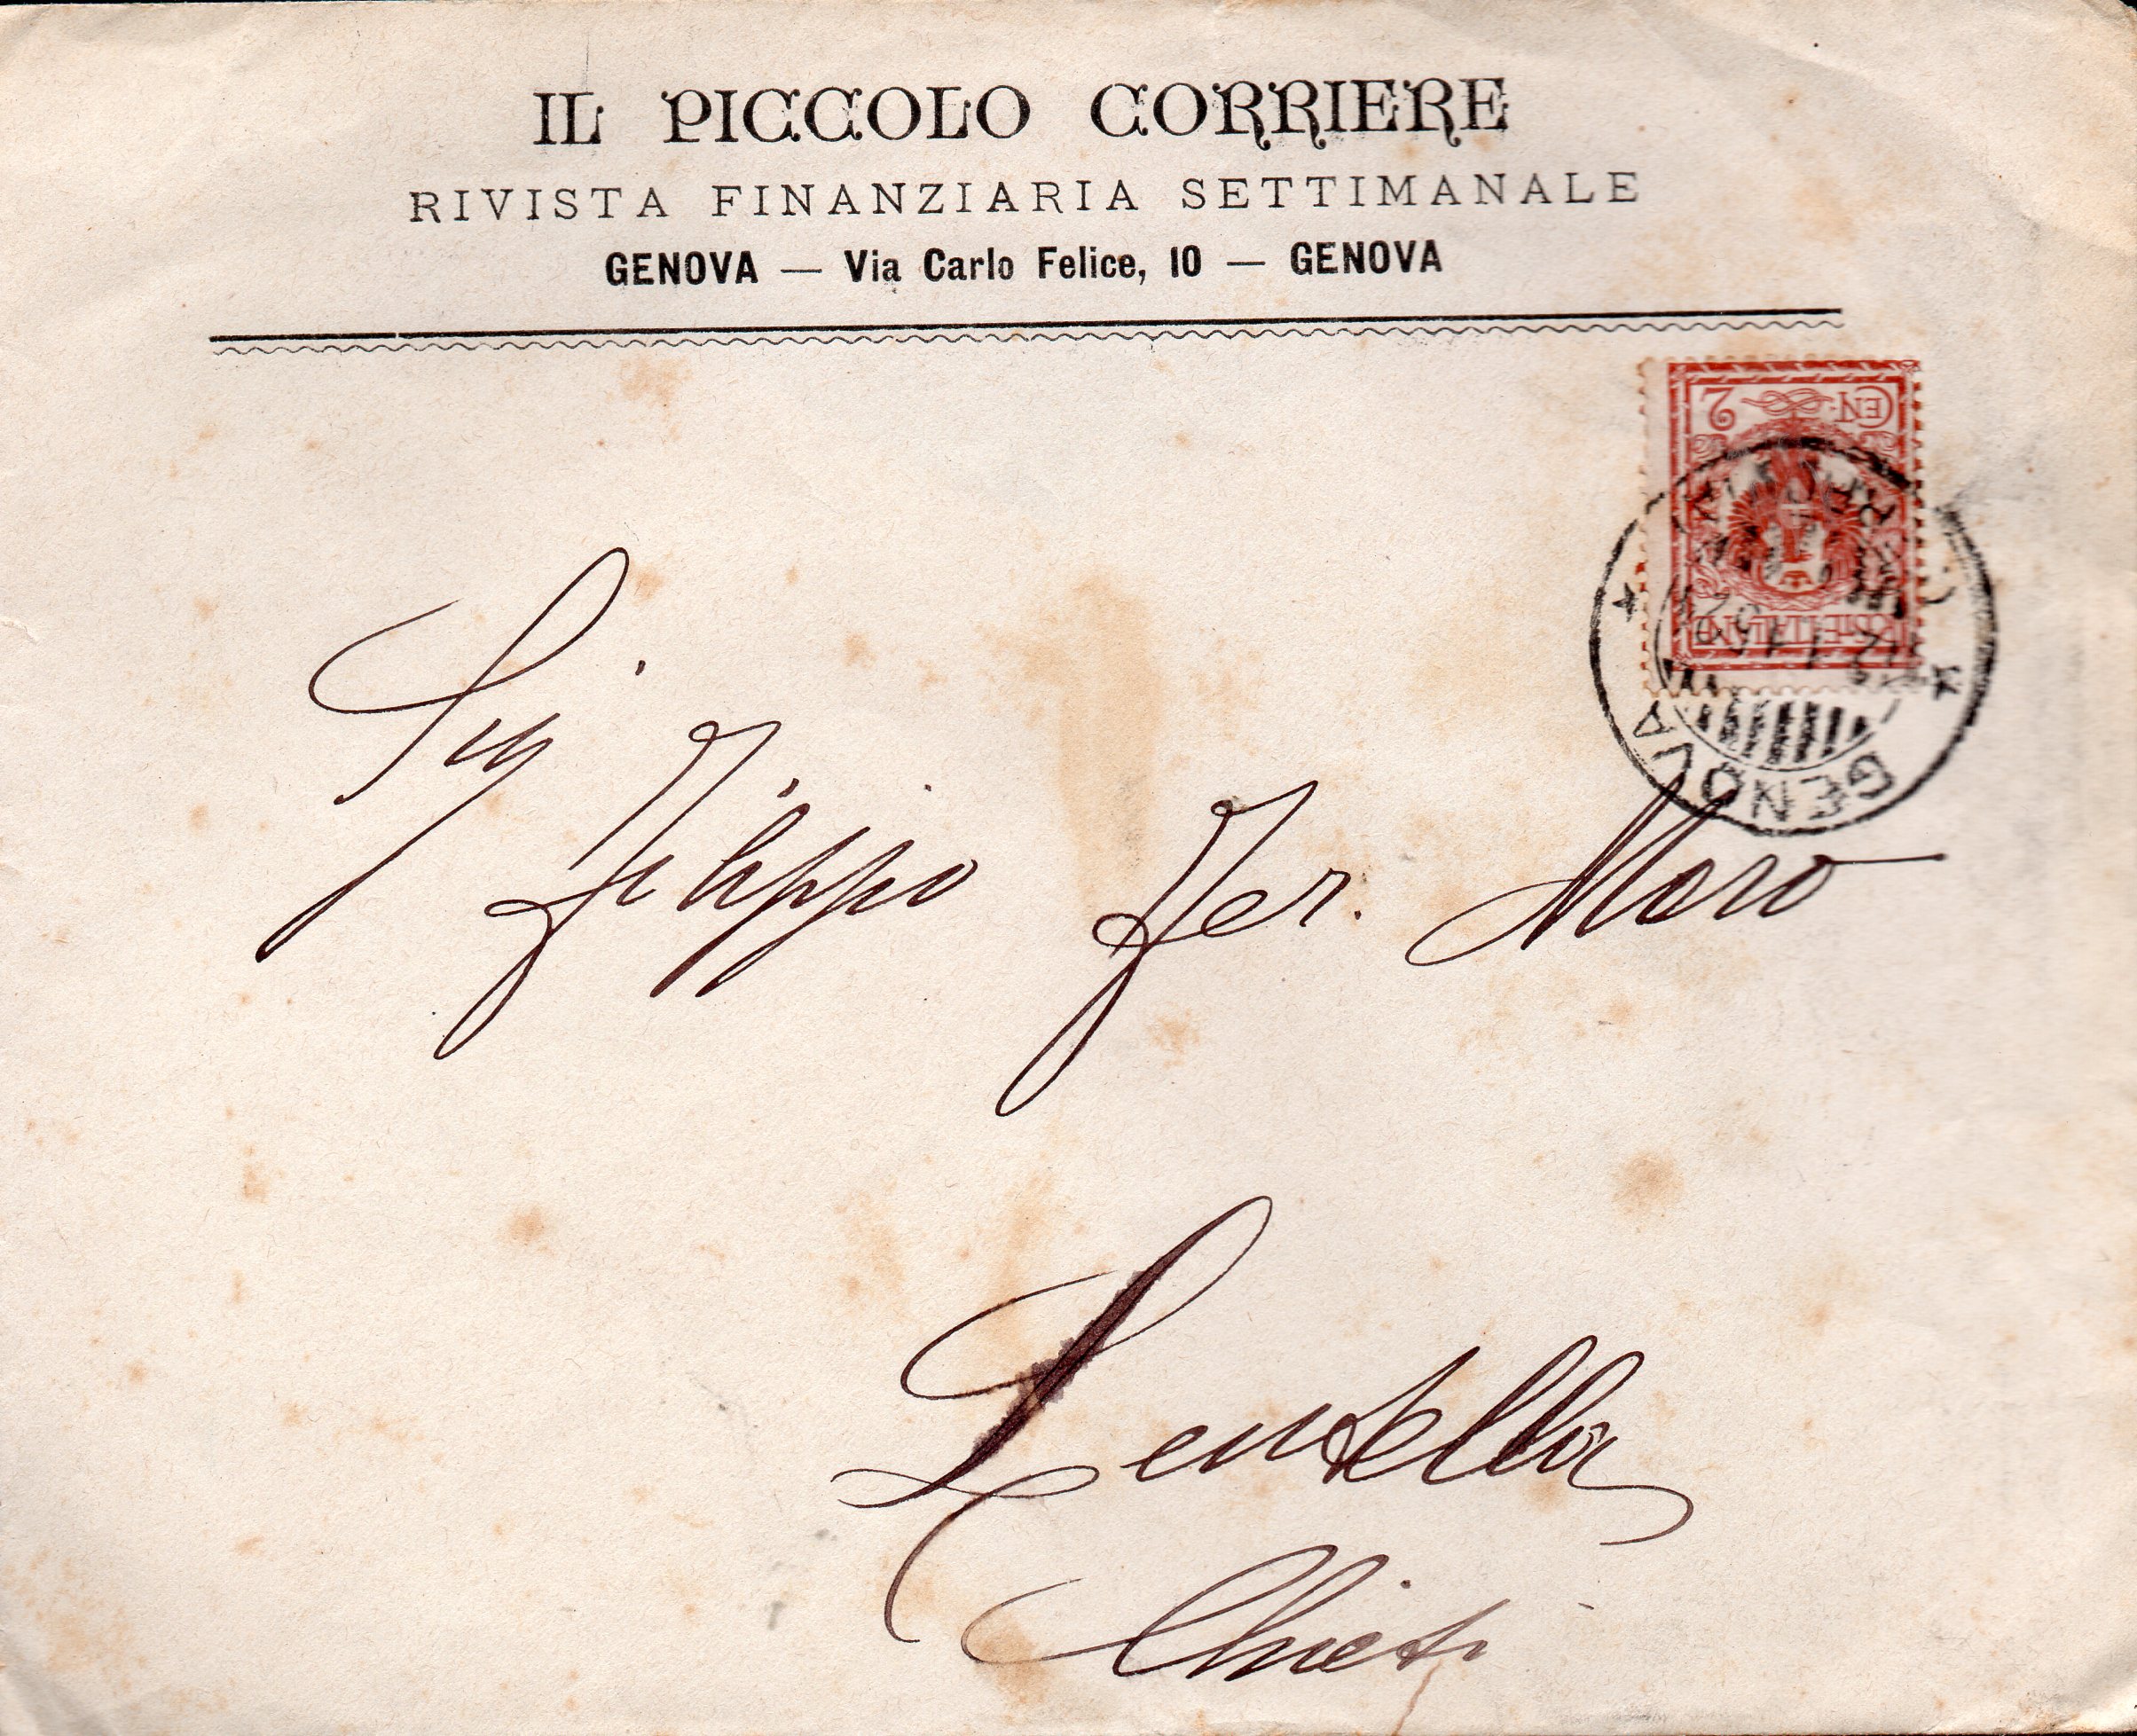 IL PICCOLO CORRIERE
RIVISTA FINANZIARIA SETTIMANALE
GENOVA — Via Carlo Felice, 10 — GENOVA
CEN. 2
POSTE ITALIANE
GENOVA
Sig
Filippo Fer. Moro
Lentella
Chieti